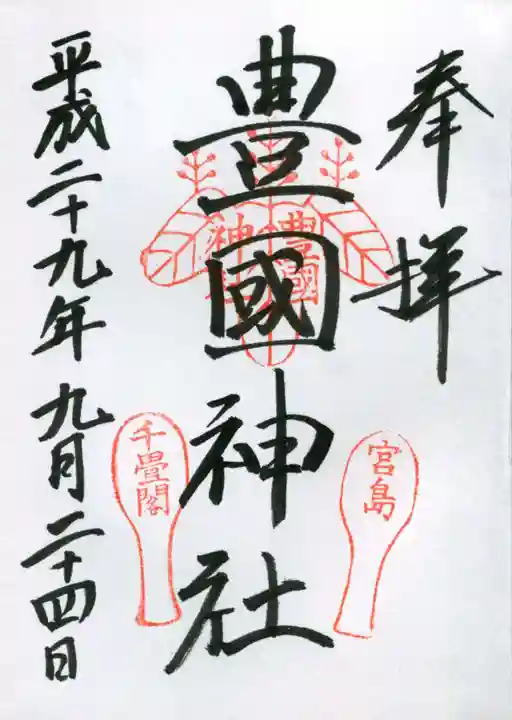 奉拝
豊國神社
平成二十九年九月二十四日
豊國
神社
宮島
千畳閣